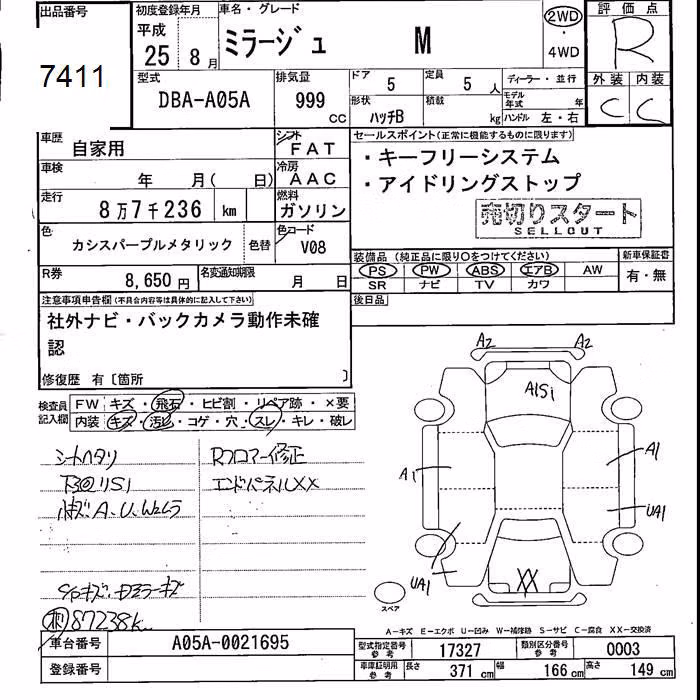 出品番号 初度登録年月 車名・グレード 評価点
7411 平成 25 8月 ミラージュ M 2WD ・ 4WD R
型式 排気量 ドア 5 定員 5人 ディーラー・並行 外装 内装
DBA-A05A 999 CC 形状 ハッチB 積載 kg モデル年式 年 ハンドル 左・右 C C
車歴 自家用 シフト FAT セールスポイント(正常に機能するものに限ります)
車検 年 月( 日) 冷房 AAC ・キーフリーシステム
・アイドリングストップ
走行 8万7千236 km 燃料 ガソリン 売切りスタート
SELLOUT
色 カシスパープルメタリック 色替 色コード V08
装備品 (純正品に限り○をつけてください) 新車保証書
PS PW ABS エアB AW 有・無
SR ナビ TV カワ
R券 8,650円 名変通知期限 月 日
後日品
注意事項申告欄(不具合内容等は具体的に記入して下さい)
社外ナビ・バックカメラ動作未確
認
修復歴 有〔箇所 〕
検査員記入欄 FW キズ・飛石・ヒビ割・リペア跡・×要
内装 キズ・汚れ・コゲ・穴・スレ・キレ・破レ
A2 A2
A1Si
A1 A1
UA1 UA1
XX
シートヘタリ Rフロアー修正
エンドパネルXX
87238k
スペア
A-キズ E-エクボ U-凹み W-補修跡 S-サビ C-腐食 XX-交換済
車台番号 A05A-0021695 型式指定番号 参考 17327 類別区分番号 参考 0003
登録番号 車庫証明用 参考 長さ 371 cm 幅 166 cm 高さ 149 cm